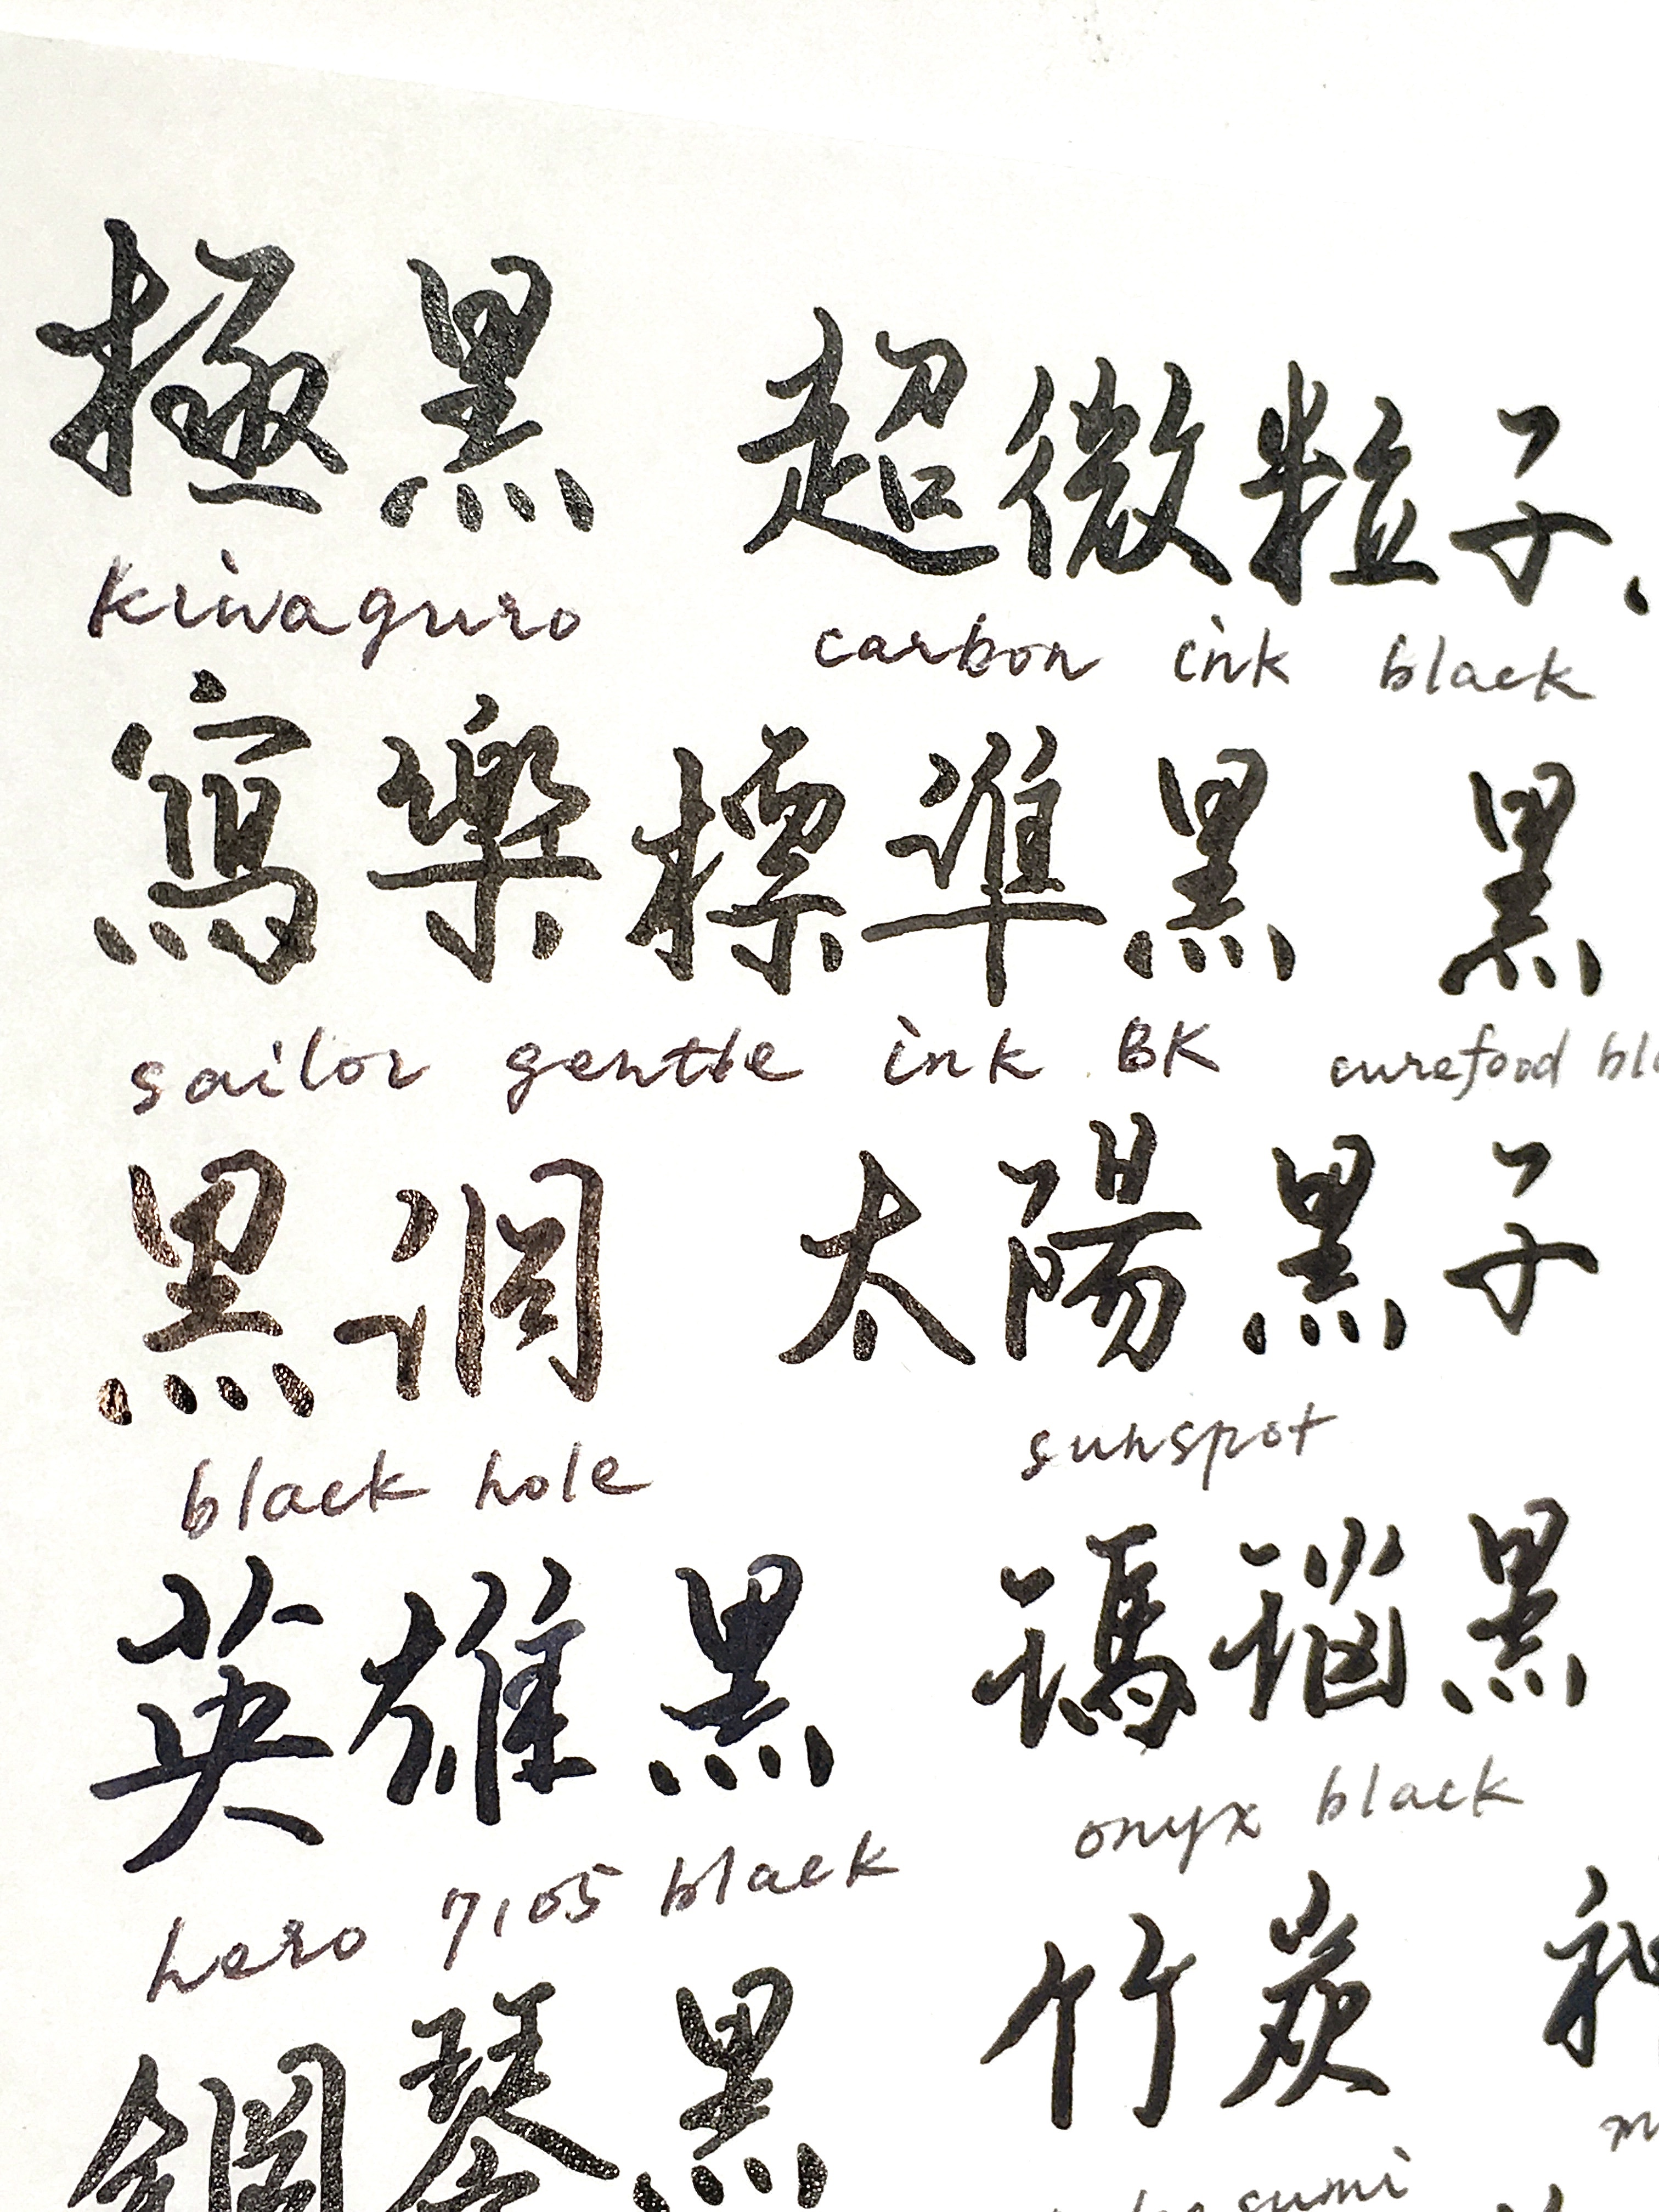 極黑 超微粒子、
kiwaguro carbon ink black
寫樂標準黑 黑
sailor gentle ink BK curefood
黑洞 太陽黑子
black hole sunspot
英雄黑 瑪瑙黑
hero 7105 black onyx black
鋼琴黑 竹炭
sumi